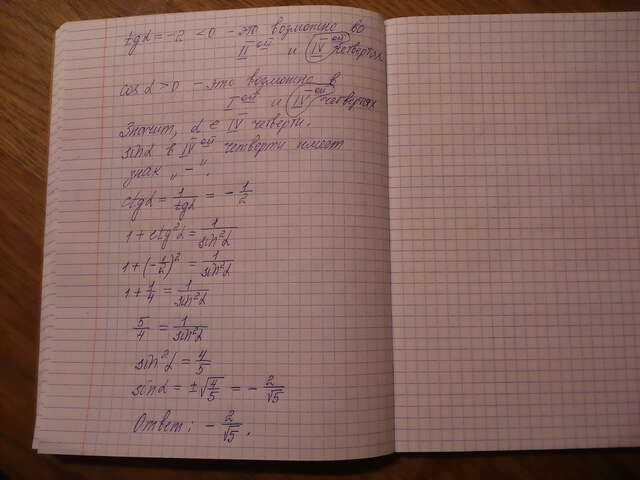 tgα = -2 < 0 - это возможно во
II ой и IV ой четвертях
cos α > 0 - это возможно в
I ой и IV ой четвертях
Значит, α ∈ IV четверти.
sinα в IV ой четверти имеет
знак „ - “.
ctgα = 1/tgα = - 1/2
1 + ctg²α = 1/sin²α
1 + (-1/2)² = 1/sin²α
1 + 1/4 = 1/sin²α
5/4 = 1/sin²α
sin²α = 4/5
sinα = ±√(4/5) = - 2/√5
Ответ: - 2/√5.